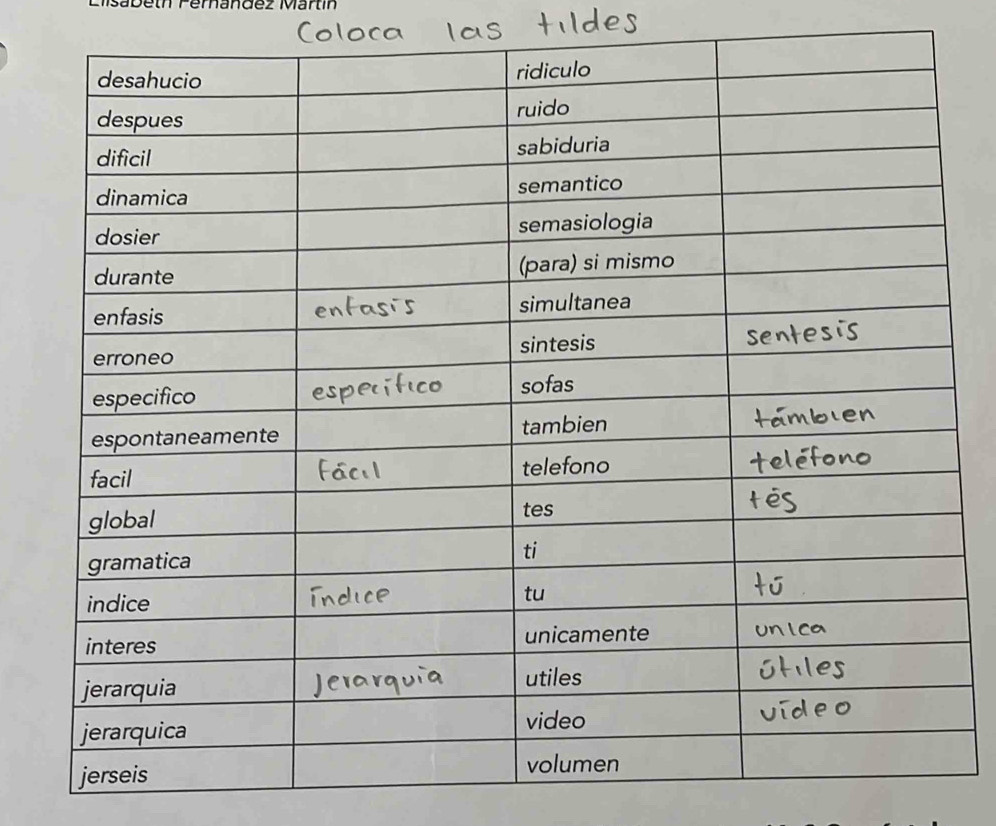 Elisabeth Fernández Martín
Coloca las tildes
desahucio ridiculo
despues ruido
dificil sabiduria
dinamica semantico
dosier semasiologia
durante (para) si mismo
enfasis enfasis simultanea
erroneo sintesis sentesis
especifico especifico sofas
espontaneamente tambien támbien
facil fácil telefono teléfono
global tes tés
gramatica ti
indice índice tu tú
interes unicamente unica
jerarquia Jerarquia utiles útiles
jerarquica video vídeo
jerseis volumen